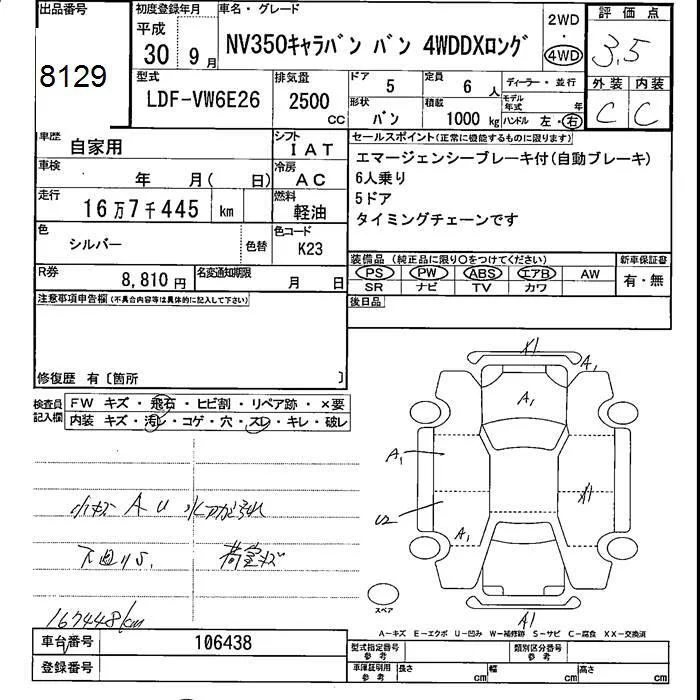 出品番号
8129
初度登録年月
平成
30 9月
車名・グレード
NV350キャラバン バン 4WDDXロング
2WD
・
4WD
評価点
3.5
外装 内装
C C
型式
LDF-VW6E26
排気量
2500
CC
ドア
5
定員
6 人
ディーラー・並行
形状
バン
積載
1000 kg
モデル年式 年
ハンドル 左・右
車歴
自家用
シフト
IAT
車検
年 月( 日)
冷房
AC
走行
16万7千445 km
燃料
軽油
色
シルバー
色替
色コード
K23
R券
8,810円
名変通知期限
月 日
セールスポイント(正常に機能するものに限ります)
エマージェンシーブレーキ付(自動ブレーキ)
6人乗り
5ドア
タイミングチェーンです
装備品 (純正品に限り○をつけてください)
PS PW ABS エアB AW
SR ナビ TV カワ
新車保証書
有・無
後日品
注意事項申告欄(不具合内容等は具体的に記入して下さい)
修復歴 有〔箇所 〕
検査員記入欄
FW キズ・飛石・ヒビ割・リペア跡・×要
内装 キズ・汚レ・コゲ・穴・スレ・キレ・破レ
小キズ A U
下廻りS.
荷室キズ
167448km
X1
A1
A1
A1
U2
A1
X1
A1
スペア
A-キズ E-エクボ U-凹み W-補修跡 S-サビ C-腐食 XX-交換済
車台番号
106438
登録番号
型式指定番号
参考
類別区分番号
参考
車庫証明用
参考
長さ cm
幅 cm
高さ cm